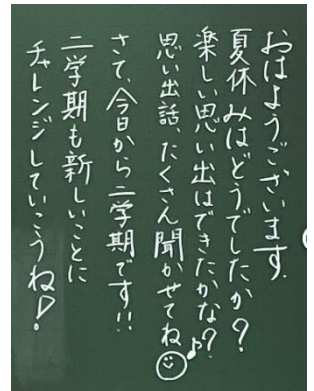 おはようございます.
夏休みはどうでしたか?
楽しい思い出はできたかな?
思い出話、たくさん聞かせてね♪
さて、今日から二学期です!!
二学期も新しいことに
チャレンジしていこうね♪!